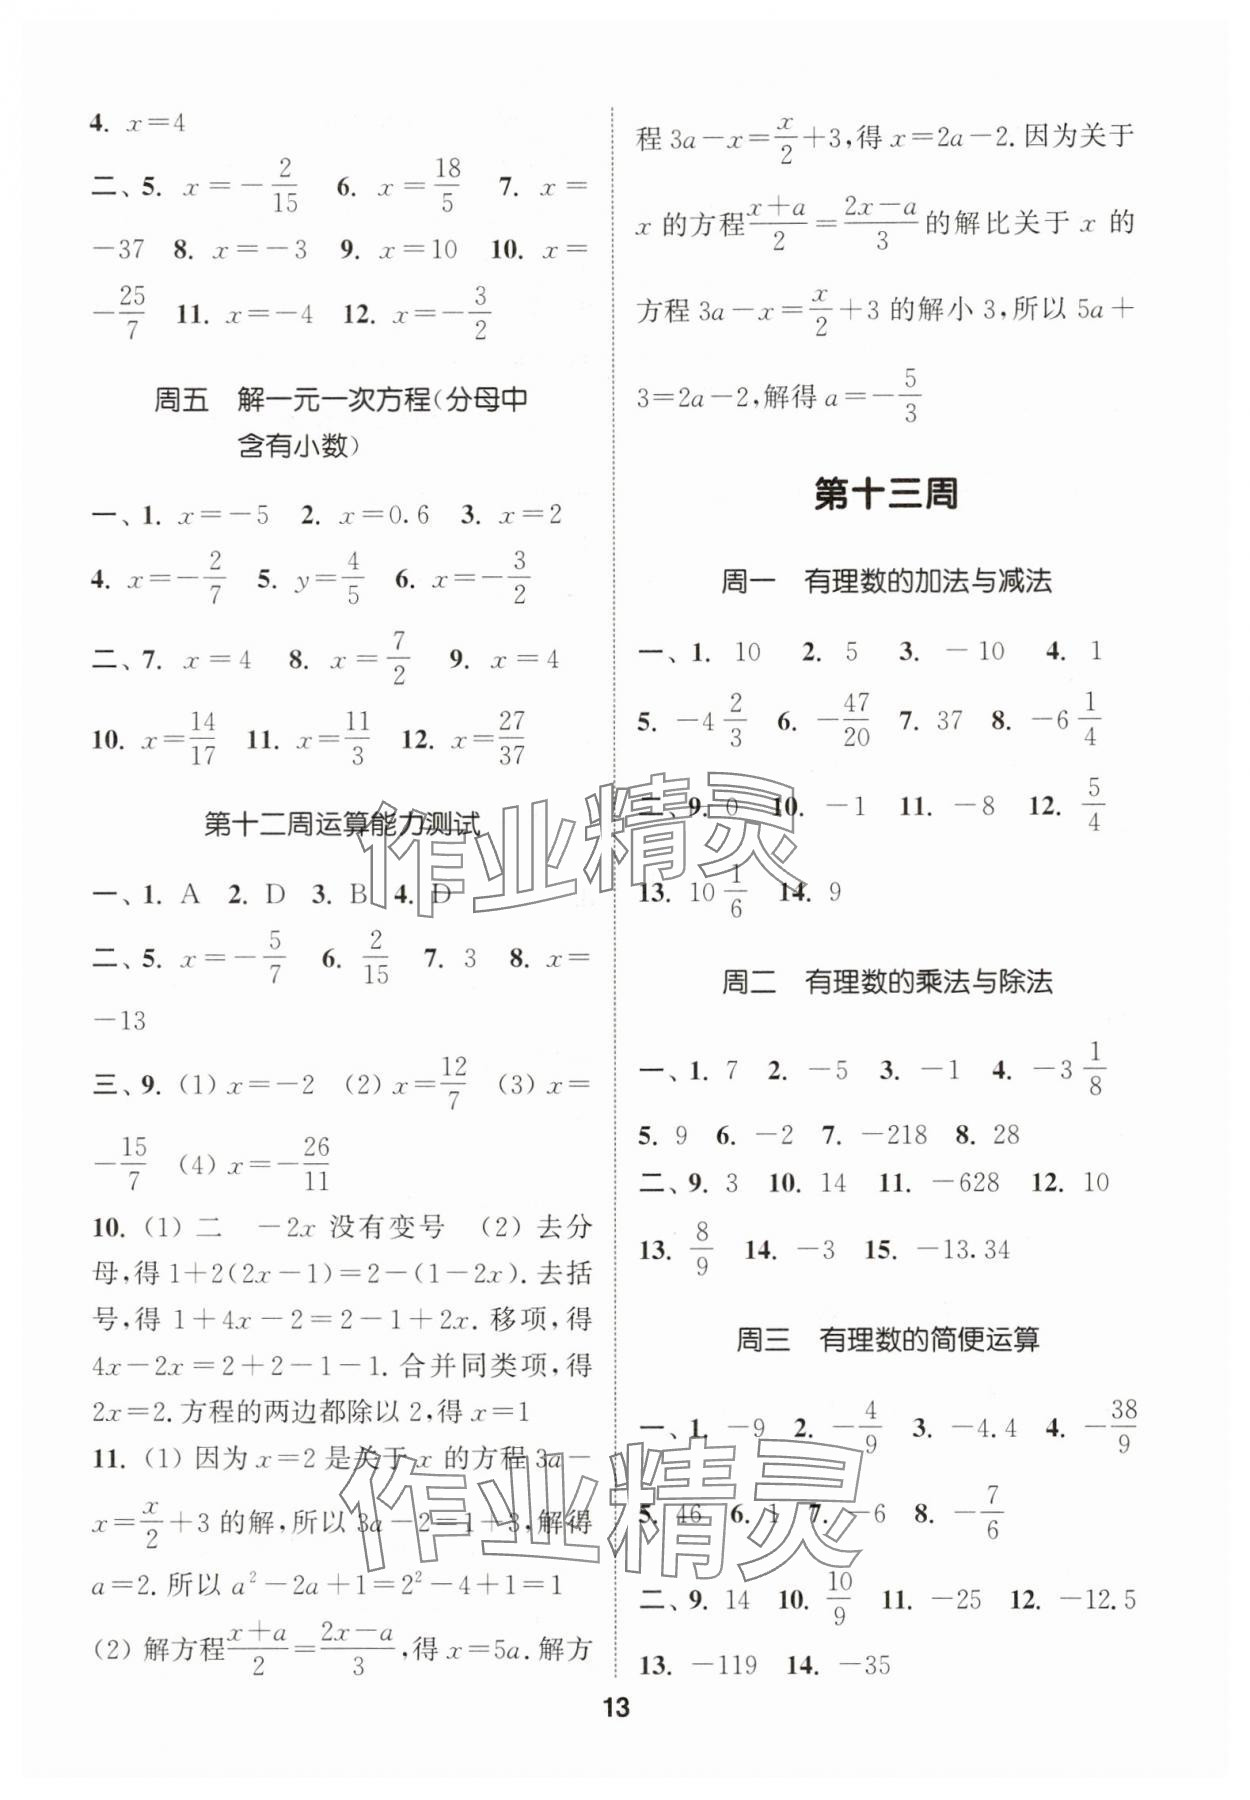 4. x=4
二、5. x=-2/15 6. x=18/5 7. x=
-37 8. x=-3 9. x=10 10. x=
-25/7 11. x=-4 12. x=-3/2
周五 解一元一次方程(分母中
含有小数)
一、1. x=-5 2. x=0.6 3. x=2
4. x=-2/7 5. y=4/5 6. x=-3/2
二、7. x=4 8. x=7/2 9. x=4
10. x=14/17 11. x=11/3 12. x=27/37
第十二周运算能力测试
一、1. A 2. D 3. B 4. D
二、5. x=-5/7 6. 2/15 7. 3 8. x=
-13
三、9. (1) x=-2 (2) x=12/7 (3) x=
-15/7 (4) x=-26/11
10. (1) 二 -2x 没有变号 (2) 去分
母,得 1+2(2x-1)=2-(1-2x). 去括
号,得 1+4x-2=2-1+2x. 移项,得
4x-2x=2+2-1-1. 合并同类项,得
2x=2. 方程的两边都除以 2,得 x=1
11. (1) 因为 x=2 是关于 x 的方程 3a-
x=x/2+3 的解,所以 3a-2=1+3,解得
a=2. 所以 a²-2a+1=2²-4+1=1
(2) 解方程(x+a)/2=(2x-a)/3,得 x=5a. 解方
程 3a-x=x/2+3,得 x=2a-2. 因为关于
x 的方程(x+a)/2=(2x-a)/3的解比关于 x 的
方程 3a-x=x/2+3 的解小 3,所以 5a+
3=2a-2,解得 a=-5/3
第十三周
周一 有理数的加法与减法
一、1. 10 2. 5 3. -10 4. 1
5. -4 2/3 6. -47/20 7. 37 8. -6 1/4
二、9. 0 10. -1 11. -8 12. 5/4
13. 10 1/6 14. 9
周二 有理数的乘法与除法
一、1. 7 2. -5 3. -1 4. -3 1/8
5. 9 6. -2 7. -218 8. 28
二、9. 3 10. 14 11. -628 12. 10
13. 8/9 14. -3 15. -13.34
周三 有理数的简便运算
一、1. -9 2. -4/9 3. -4.4 4. -38/9
5. 46 6. 1 7. -6 8. -7/6
二、9. 14 10. 10/9 11. -25 12. -12.5
13. -119 14. -35
13
作业精灵
作业精灵